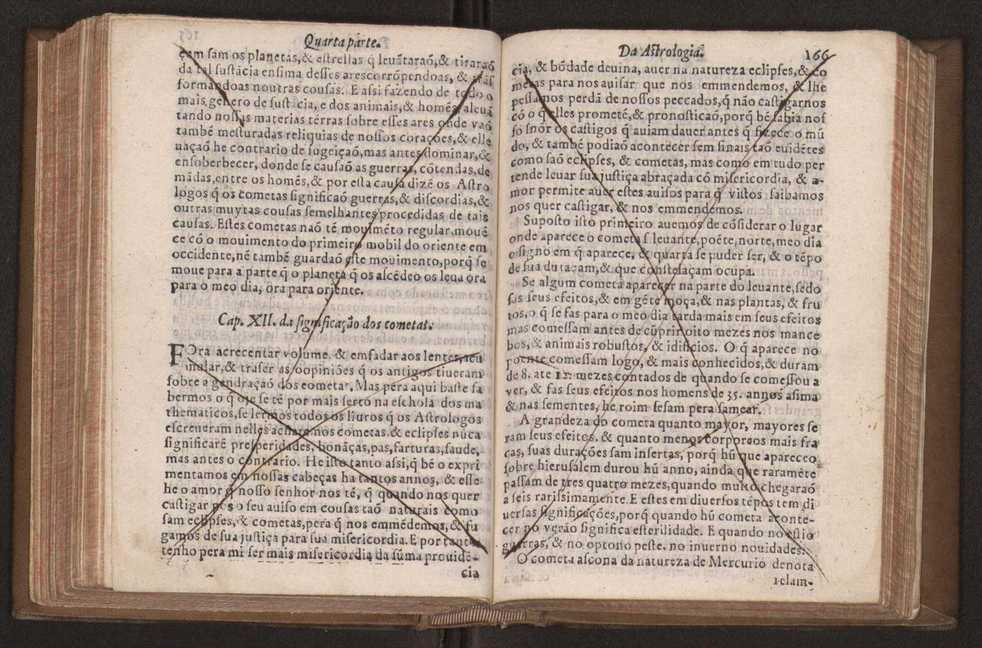 Quarta parte.
çam sam os planetas, & estrellas q̃ leuãtaraõ, & tiraraõ
da tal sustãcia ensima desses ares corrõpendoas, &
formandoas noutras cousas. E assi fazendo de todo o
mais genero de sustãcia, e dos animais, & homẽs, aleuã
tando nossas materias terras sobre esses ares onde vaõ
tambẽ mesturadas reliquias de nossos corações, & elle
uaçaõ he contrario de sugeiçaõ, mas antes dominar, &
ensoberbecer, donde se causaõ as guerras, cõtendas, de
mãdas, entre os homẽs, & por esta causa dizẽ os Astro
logos q̃ os cometas significaõ guerras, & discordias, &
outras muytas cousas semelhantes procedidas de tais
causas. Estes cometas naõ tẽ mouimẽto regular, mouẽ
ce cõ o mouimento do primeiro mobil do oriente em
occidente, nẽ tambẽ guardaõ este mouimento, porq̃ se
moue para a parte q̃ o planeta q̃ os ascẽdeo os leua ora
para o meo dia, ora para oriente.
Cap. XII. da significação dos cometas.
FOra acrecentar volume, & emfadar aos lentes, seu
mular, & traser as oopiniões q̃ os antigos tiueram
sobre a gendraçaõ dos cometas, Mas pera aqui baste sa
bermos o q̃ oje se tẽ por mais serto na eschola dos ma
thematicos, se lermos todos os liuros q̃ os Astrologos
escreueram nelles acharemos cometas & eclipses nũca
significarẽ presperidades, bonãças, pas, farturas, saude,
mas antes o contrario. He isto tanto assi, q̃ bẽ o expri
mentamos em nossas cabeças ha tantos annos, & esse
he o amor q̃ nosso senhor nos tẽ, q̃ quando nos quer
castigar nos o seu auiso em cousas taõ naturais como
sam eclipses, & cometas, pera q̃ nos emmẽdemos, & fu
gamos de sua justiça para sua misericordia. E por tanto
tenho pera mi ser mais misericordia da sũma prouidẽ-
cia
Da Astrologia. 166
cia, & bõdade deuina, auer na natureza eclipses, & co
metas para nos auisar que nos emmendemos, & lhe
pessamos perdã de nossos peccados, q̃ não castigarnos
cõ o q̃ elles prometẽ, & pronosticaõ, porq̃ bẽ sabia nos
so snõr os castigos q̃ auiam dauer antes q̃ fizece o mũ
do, & tambẽ podiaõ acontecer sem sinais taõ euidẽtes
como saõ eclipses, & cometas, mas como em tudo per
tende leuar sua justiça abraçada cõ misericordia, & a-
mor permite auer estes auisos para q̃ vistos saibamos
nos quer castigar, & nos emmendemos.
Suposto isto primeiro auemos de cõsiderar o lugar
onde aparece o cometa s. leuante, poẽte, norte, meo dia
o signo em q̃ aparece, & quarta se puder ser, & o tẽpo
de sua duraçam, & que constelaçam ocupa.
Se algum cometa aparecer na parte do leuante, sedo
fas seus efeitos, & em gẽte moça, & nas plantas, & fru
tos, o q̃ se fas para o meo dia tarda mais em seus efeitos
mas comessam antes de cũprir oito mezes nos mance
bos, & animais robustos, & idificios. O q̃ aparece no
poente comessam logo, & mais conhecidos, & duram
de 8. ate 12. mezes contados de quando se comessou a
ver, & fas seus efeitos nos homens de 35. annos asima
& nas sementes, he roim sesam pera samear.
A grandeza do cometa quanto mayor, mayores se
ram seus efeitos. & quanto menor corporaos mais fra
cas, suas durações sam insertas, porq̃ hũ que apareceo
sobre hierusalem durou hũ anno, ainda que raramẽte
passam de tres quatro mezes, quando muito chegaraõ
a seis rarissimamente. E estes em diuersos tẽpos tem di
uersas significações, porq̃ quando hũ cometa aconte-
cer no verão significa esterilidade. E quando no estio
guerras, & no optono peste. no inuerno nouidades.
O cometa ascona da natureza de Mercurio denota
relam-